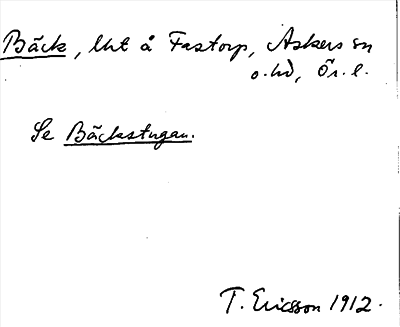 Bäck, lht å Fastorp, Askers sn
o. hd, Ör. l.
Se Bäckstugan.
T. Ericsson 1912.